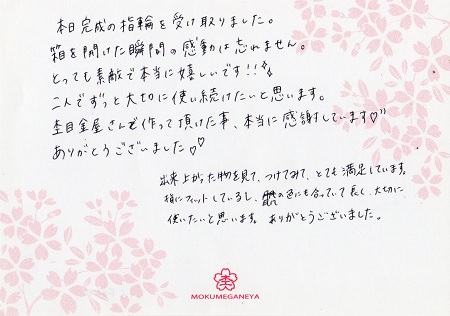 本日完成の指輪を受け取りました。
箱を開けた瞬間の感動は忘れません。
とっても素敵で本当に嬉しいです!!
二人でずっと大切に使い続けたいと思います。
杢目金屋さんで作って頂けた事、本当に感謝しています♡
ありがとうございました♡
出来上がった物を見て、つけてみて、とても満足しています。
指にフィットしているし、肌の色にも合っていて良し、大切に
使いたいと思います。ありがとうございました。
杢
MOKUMEGANEYA